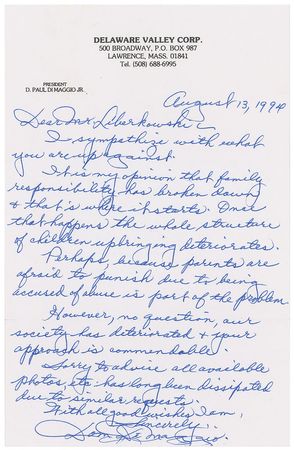 DELAWARE VALLEY CORP.
500 BROADWAY, P.O. BOX 987
LAWRENCE, MASS. 01841
Tel. (508) 688-6995
PRESIDENT
D. PAUL DI MAGGIO JR.
August 13, 1994
Dear Mr Liberkowski -
I sympathize with what
you are up against.
It is my opinion that family
responsibility has broken down
& that's where it starts. Once
that happens the whole structure
of children upbringing deteriorates.
Perhaps, because parents are
afraid to punish due to being
accused of abuse is part of the problem.
However, no question, our
society has deteriorated & your
approach is commendable.
Sorry to advice all available
photos, etc. has long been dissipated
due to similar requests.
With all good wishes I am,
Sincerely,
Dom DiMaggio.